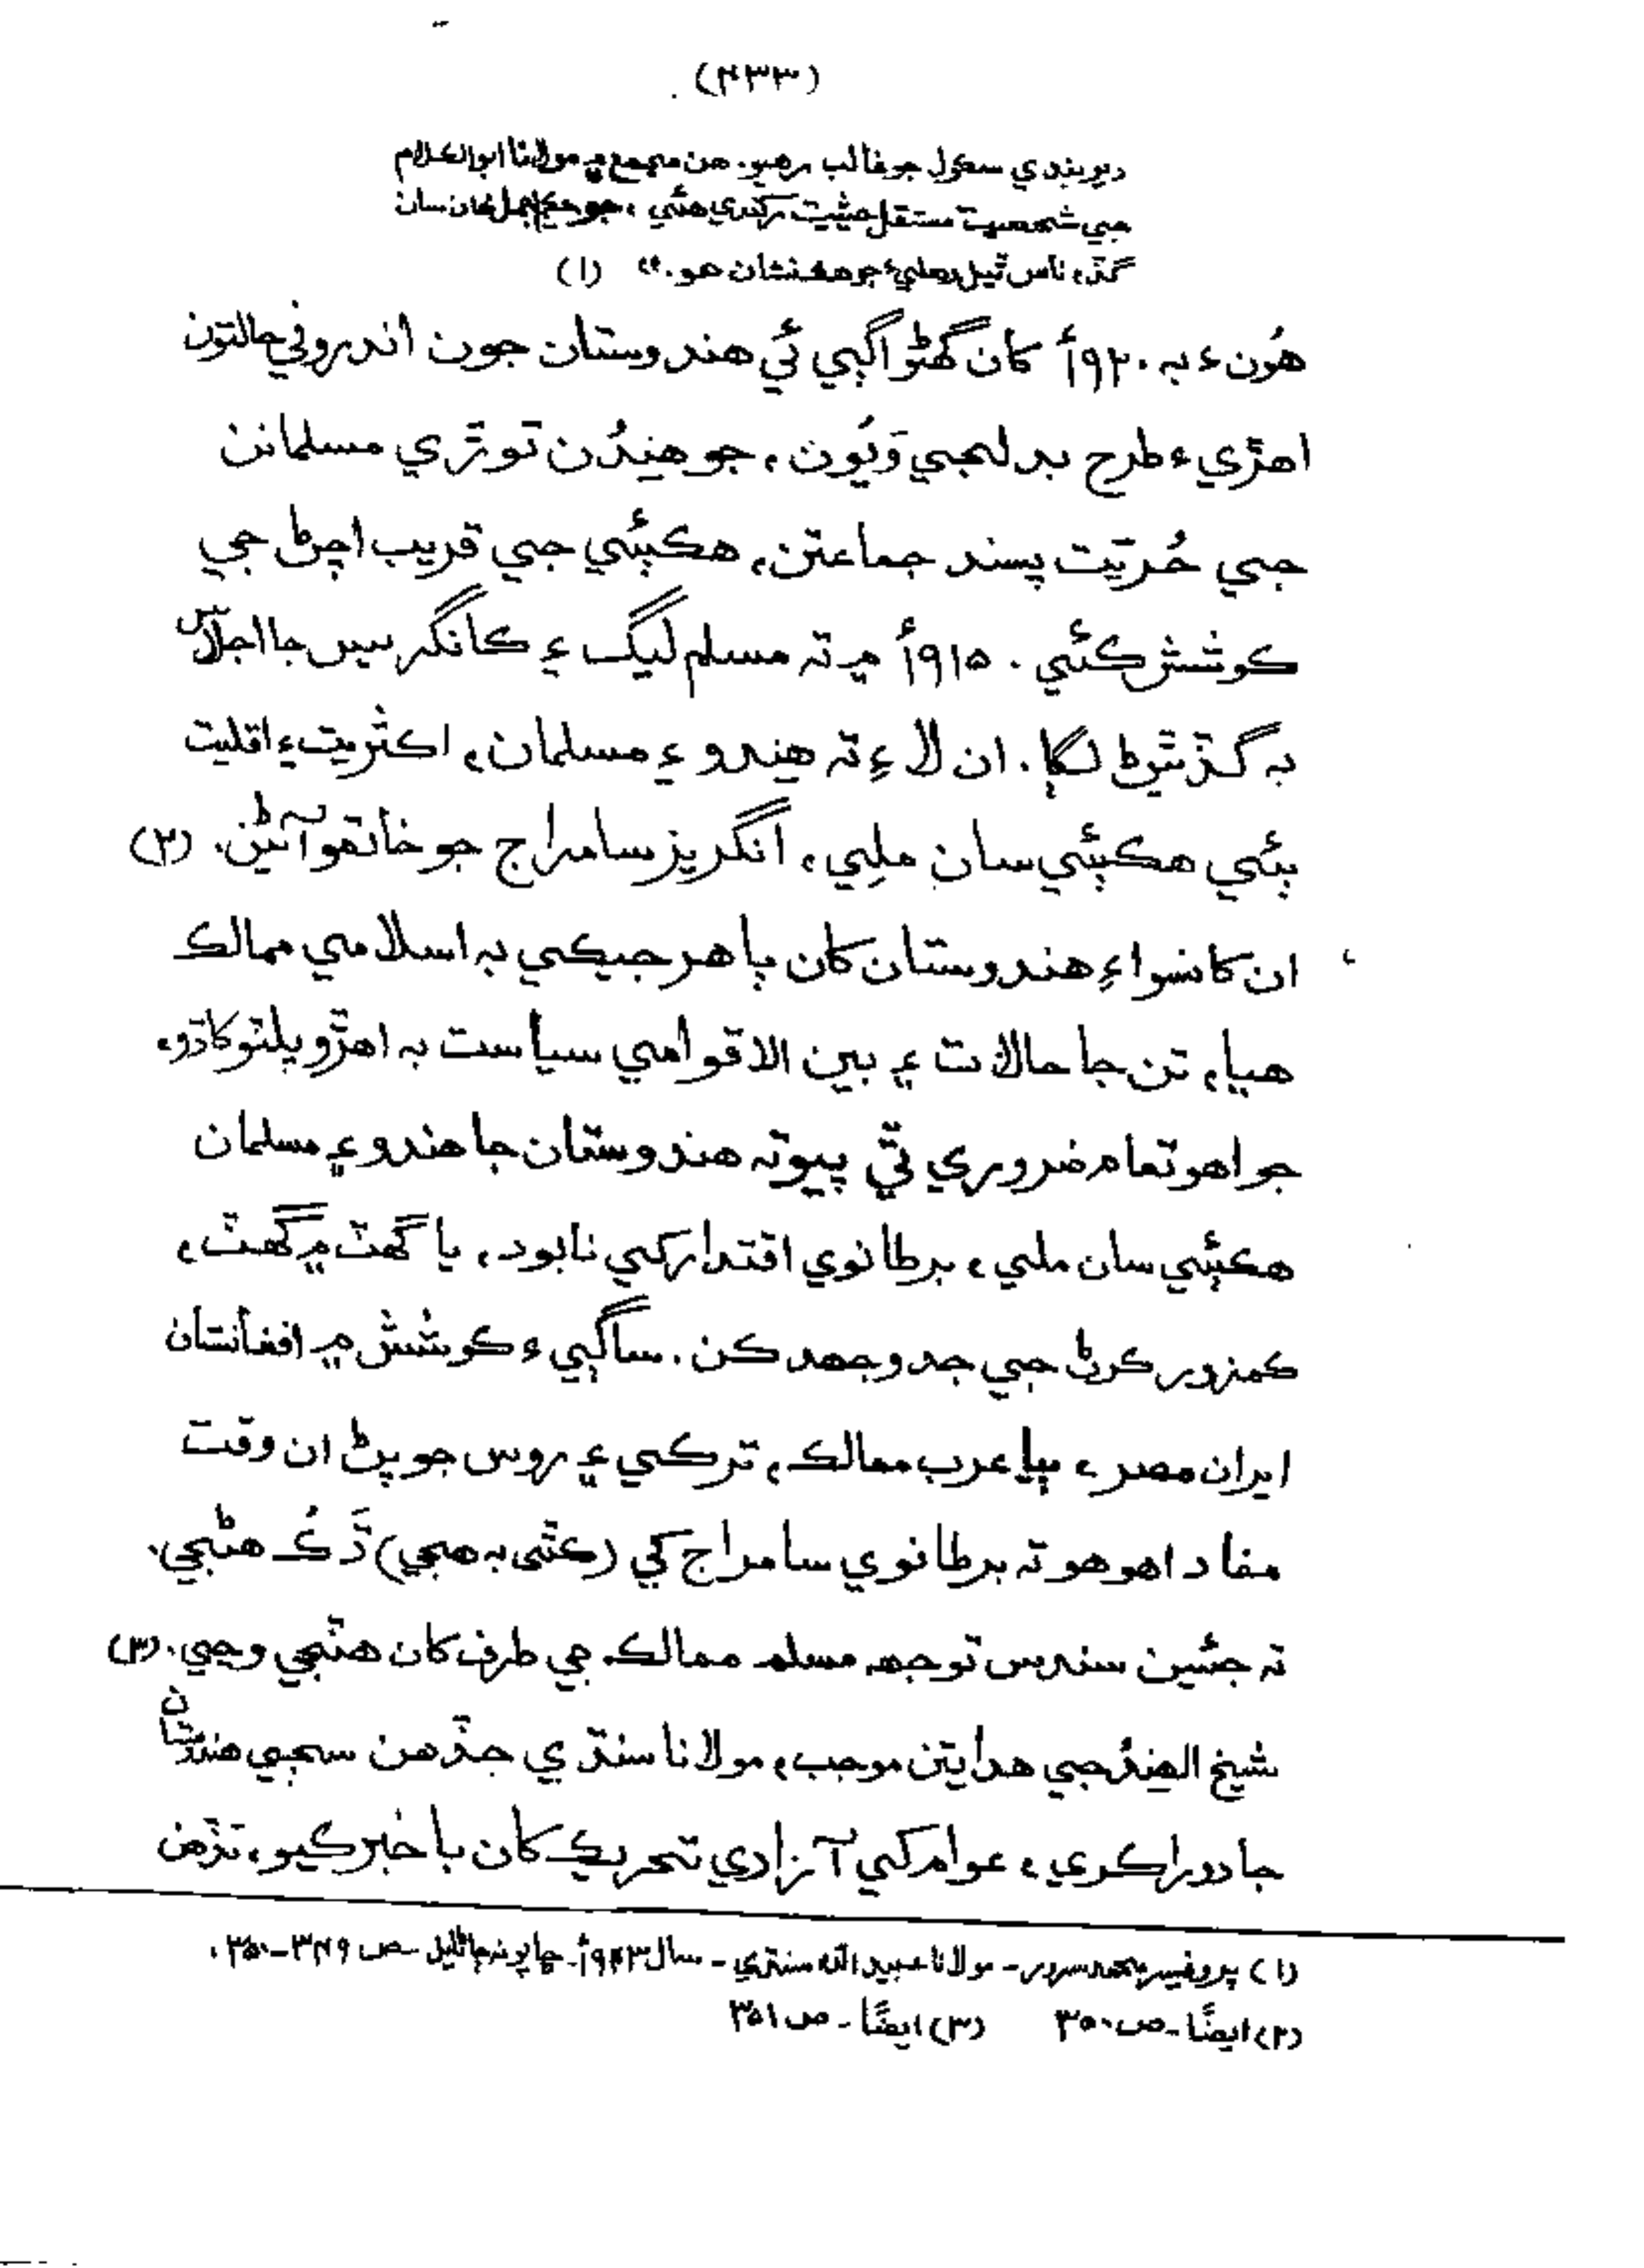 (٤٣٣)
ديوبندي سڪول جو غالب رهيو. هن مجمع ۾ مولانا ابوالڪلام
جي شخصيت مستقل حيثيت رکندي هئي، جو حڪيم اجمل خان سان
گڏ، ناس ٿيل دهليءَ جو هڪ نشان هو.“ (١)
هُونءَ به ١٩٢٠ع کان گھڻو اڳي ئي هندوستان جون اندروني حالتون
اهڙيءَ طرح بدلجي وَيُون، جو هندُن توڙي مسلمانن
جي حُريّت پسند جماعتن، هڪٻئي جي قريب اچڻ جي
ڪوشش ڪئي. ١٩١٥ع ۾ ته مسلم ليگ ۽ ڪانگريس جا اجلاس
به گڏ ٿيڻ لڳا. ان لاءِ ته هندو ۽ مسلمان، اڪثريت ۽ اقليت
ٻئي هڪٻئي سان ملِي، انگريز سامراج جو خاتمو آڻين. (٢)
ان کانسواءِ هندوستان کان ٻاهر جيڪي به اسلامي ممالڪ
هيا، تن جا حالات ۽ بين الاقوامي سياست به اهڙو پلٽو کاڌو،
جو اهو تمام ضروري ٿي پيو ته هندوستان جا هندو ۽ مسلمان
هڪٻئي سان ملي، برطانوي اقتدار کي نابود، يا گھٽ ۾ گھٽ،
ڪمزور ڪرڻ جي جدوجهد ڪن. ساڳيءَ ڪوشش ۾ افغانستان
ايران مصر، ٻيا عرب ممالڪ، ترڪي ۽ روس جو پڻ ان وقت
مفاد اهو هو ته برطانوي سامراج کي (ڪٿي به هجي) ڌَڪُ هڻجي.
ته جيئن سندس توجهه مسلم ممالڪ جي طرف کان هٽجي وڃي. (٣)
شيخ الهندؒ جي هدايتن موجب، مولانا سنڌي جڏهن سڄي هندستان
جا دورا ڪري، عوام کي آزادي تحريڪ کان باخبر ڪيو، تڏهن
(١) پروفيسر محمد سرور - مولانا عبيدالله سنڌي - سال ١٩٤٣ع ڇاپو - ص ٣٤٩-٣٥٠.
(٢) ايضًا - ص ٣٥٠ (٣) ايضًا - ص ٣٥١